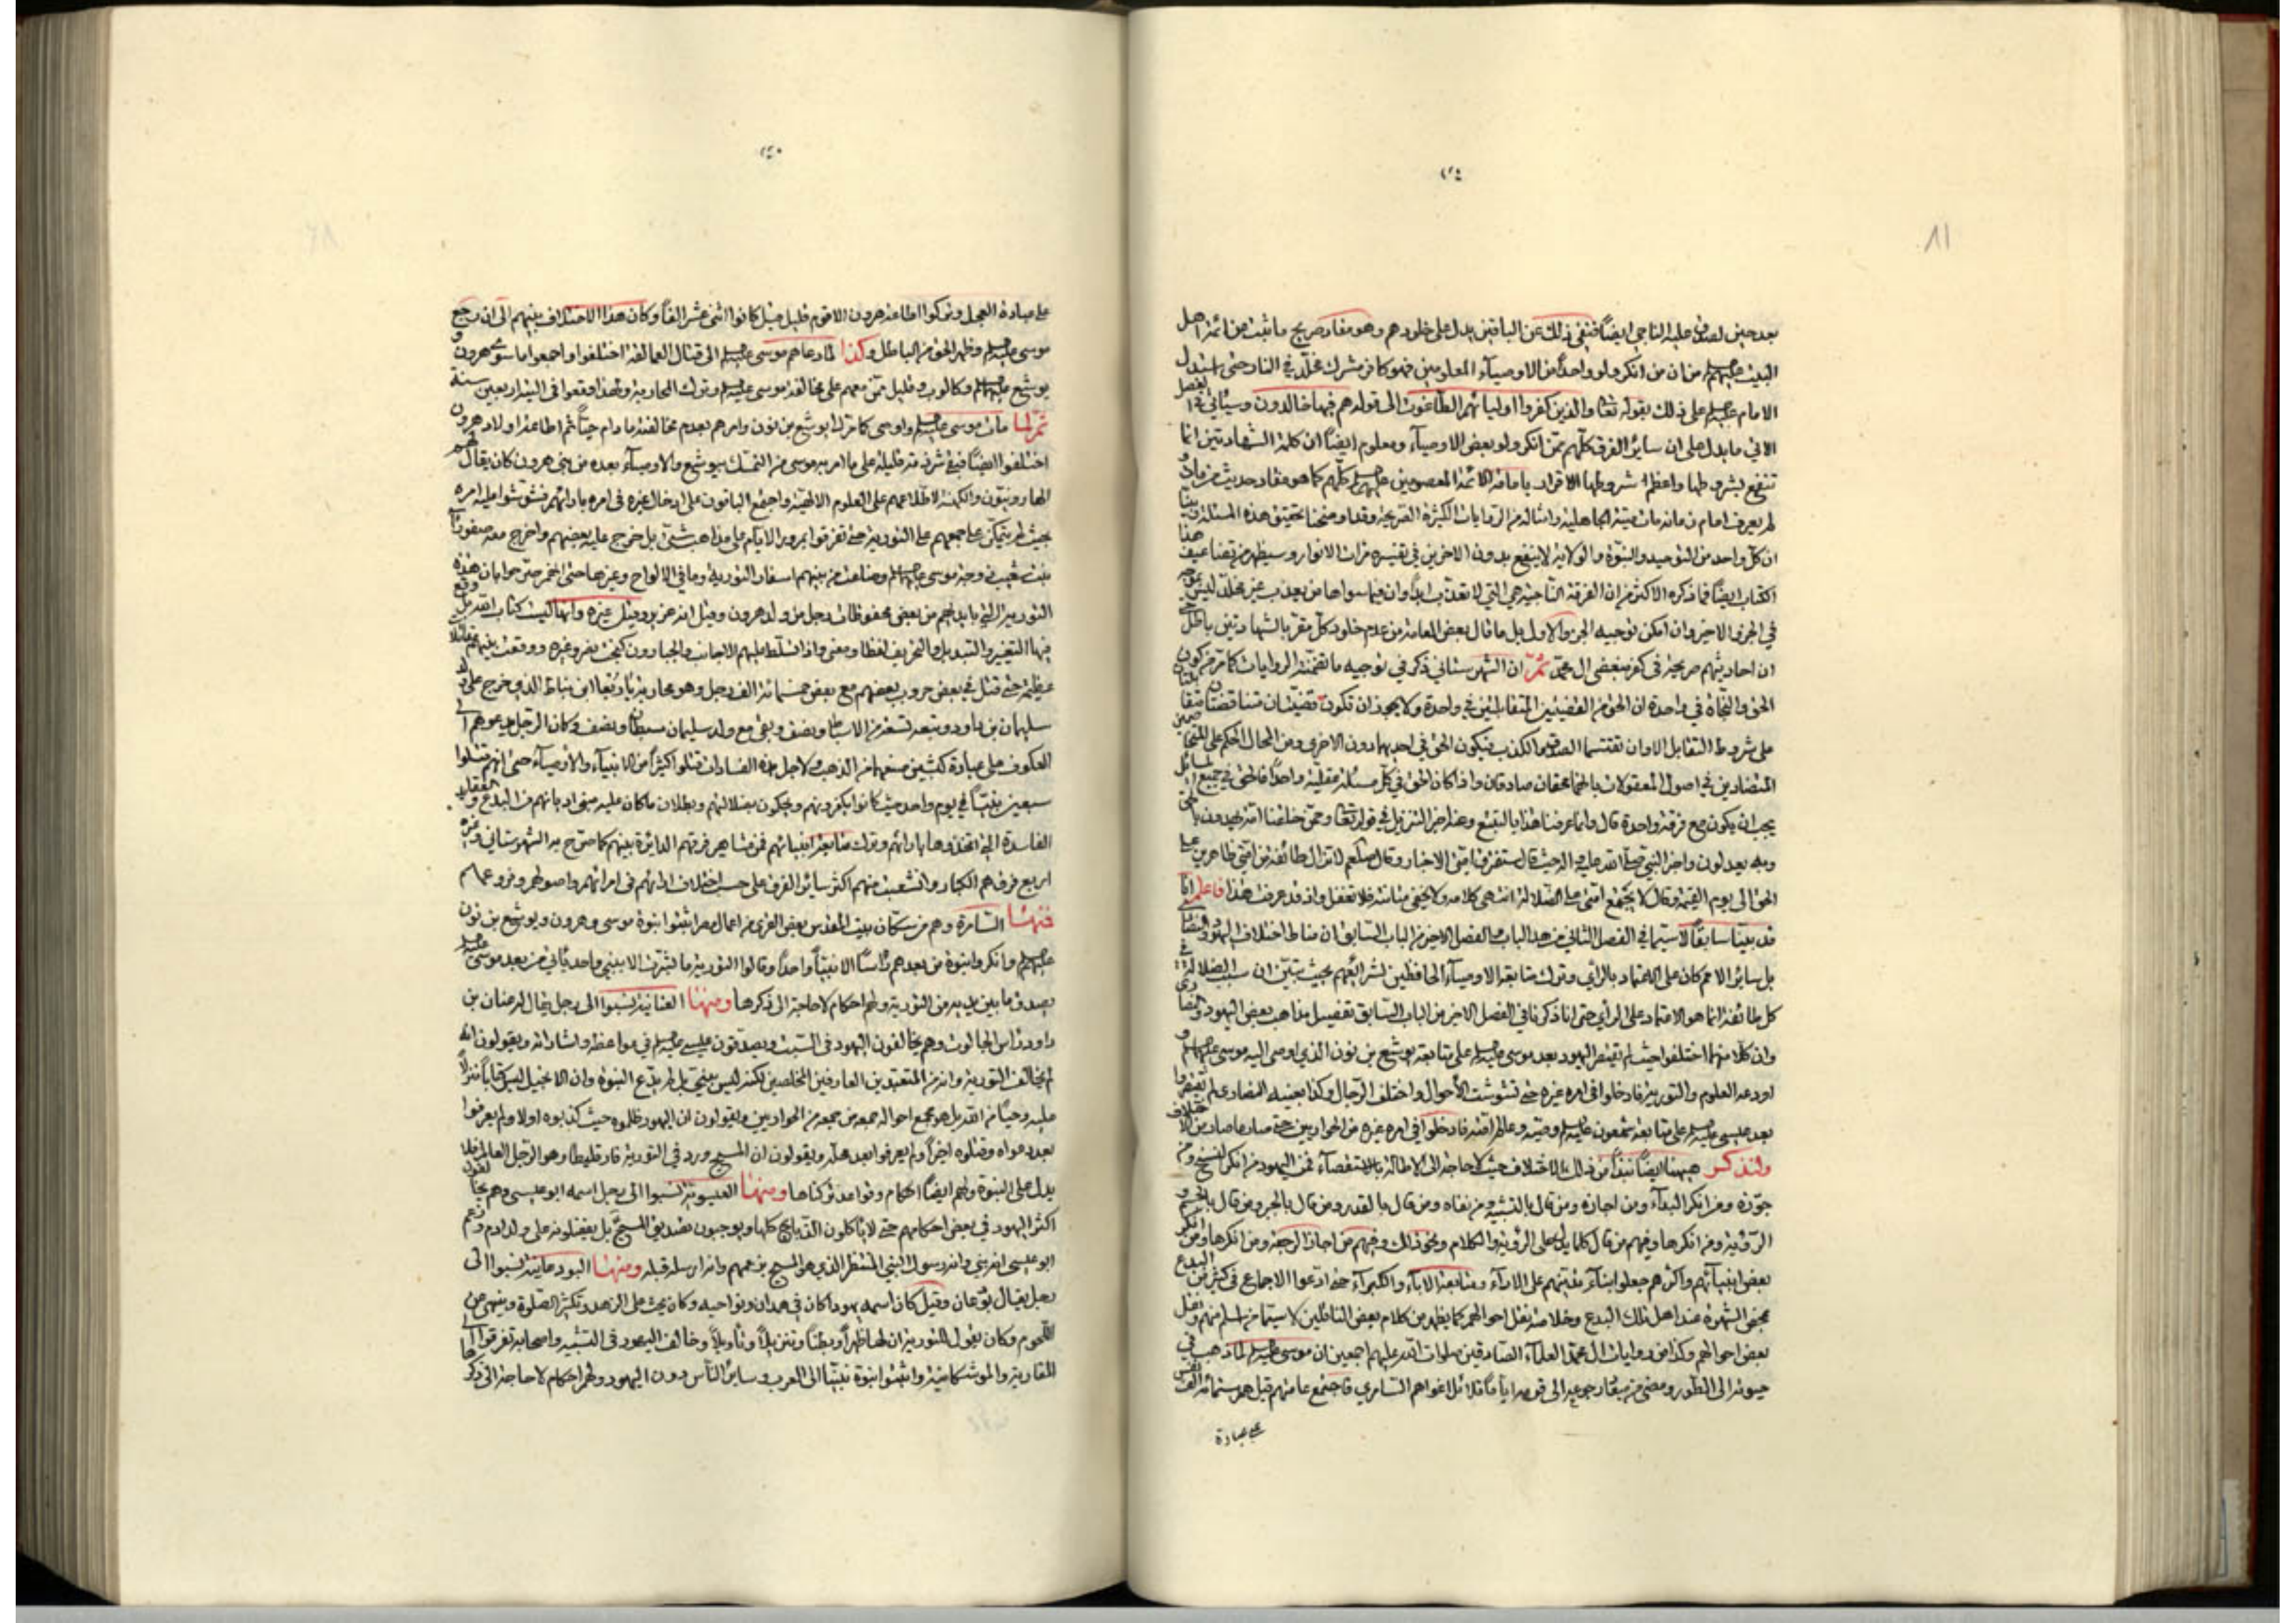 بعد حين لصدق عليه الناجي ايضاً فنفي ذلك عن الباقين يدل على خلودهم وهو مفاد صريح ما ثبت من ائمة اهل
البيت عليهم السلم من ان من انكر ولو واحداً من الاوصيآء المعلومين فهو كافر مشرك مخلّد في النار حتى استدل
الامام عليه السلم على ذلك بقوله تعا والذين كفروا اوليائهم الطّاغوت الى قوله هم فيها خالدون وسيأتي في الفصل
الاتي ما يدل على ان سائر الفرق كلّهم ممّن انكر ولو بعض الاوصيآء ومعلوم ايضاً ان كلمة الشهادتين انما
تنفع بشروطها واعظم شروطها الاقرار بامامة الائمة المعصومين عليهم السلم كلّهم كما هو مفاد حديث من مات و
لم يعرف امام زمانه مات ميتة الجاهلية وامثاله من الروايات الكثيرة الصّريحة وقد اوضحنا تحقيق هذه المسئلة وبيّنا
ان كلّ واحد من التوحيد والنبوّة والولاية لا ينفع بدون الاخرين في تفسير مرات الانوار وسيظهر من تضاعيف هذا
الكتاب ايضاً فما ذكره الاكثر من ان الفرقة النّاجية هي التي لا تعذّب ابداً وان فيما سواها من يعذب غير مخلّد ليس بموجه
في الجزء الاخير وان امكن توجيه الجزء الاول بل ما قال بعض العامة من عدم خلود كلّ مقر بالشهادتين باطل حتى
ان احاديثهم صريحة في كفر مبغضي ال محمّد ثمّ ان الشهرستاني ذكر في توجيه ما تضمّنته الروايات كما مرّ من كون
الحق والنّجاة في واحدة ان الحق من القضيتين المتقابلتين في واحدة ولا يجوز ان تكون قضيّتان متناقضتان متقابلتان
على شروط التقابل الا وان تقتسما الصدق والكذب فيكون الحق في احديهما دون الاخرى ومن المحال الحكم على المتخاصمين
المتضادين في اصول المعقولات بانهما محقان صادقان واذا كان الحق في كلّ مسئلة عقلية واحداً فالحق في جميع المسائل
يجب ان يكون مع فرقة واحدة قال وانما عرفنا هذا بالتتبع وعنه اخبر التنزيل في قوله تعا وممّن خلقنا امّة يهدون بالحق
وبه يعدلون واخبر النبي صلى الله عليه واله حيث قال ستفترق امّتي الاخبار وقال صلعم لا تزال طائفة من امّتي ظاهرين على
الحق الى يوم القيمة وقال لا تجتمع امّتي على الضّلالة انتهى كلامه ولا يخفى متانته فلا تغفل واذ قد عرفت هذا فاعلم انا
قد بيّنا سابقاً لا سيّما في الفصل الثاني من هذا الباب والفصل الاخير من الباب السابق ان مناط اختلاف اليهود والنصارى
بل سائر الامم كان على الاعتماد بالرأي وترك متابعة الاوصيآء الحافظين لشرائعهم بحيث تبيّن ان سبب الضلالة في
كل طائفة انما هو الاعتماد على الرأي حتى انا ذكرنا في الفصل الاخير من الباب السّابق تفصيل مذاهب بعض اليهود والنصارى
وان كلّا منهما اختلفوا حيث لم تقتصر اليهود بعد موسى عليه السلم على متابعة يوشع بن نون الذي اوصى اليه موسى عليهم السلم و
اودعه العلوم والتورية فادخلوا في امره غيره حتى تشوشت الأحوال واختلف الرّجال وكذا بعينه النصارى لم يقتصروا
بعد عيسى عليه السلم على متابعة شمعون عليه السلم وصيّه وعالم امّته فادخلوا في امره غيره من الحواريين حتى صار ما صار من الاختلاف
ولنذكر ههنا ايضاً نبذاً من ذلك الاختلاف حيث لا حاجة الى الاطالة بالاستقصآء فمن اليهود من انكر النسخ ومنهم من
جوّزه ومن انكر البدآء ومن اجازه ومن قال بالتشبيه ومن نفاه ومن قال بالقدر ومن قال بالجبر ومن قال بالتجسم و
الرّؤية ومن انكرها وفيهم من قال كلما يدل على الرؤية والكلام ونحو ذلك ومنهم من اجاز الرجعة ومن انكرها ومن انكر
بعض انبيآئهم واكثرهم جعلوا بنآء مذهبهم على الارآء ومتابعة الابآء والكبرآء حتى ادعوا الاجماع في كثير من البدع
بمحض الشهرة عند اهل تلك البدع وخلاصة نقل احوالهم كما يظهر من كلام بعض الناقلين لا سيّما من اسلم منهم ونقل
بعض احوالهم وكذا من روايات ال محمّد العلمآء الصّادقين صلوات الله عليهم اجمعين ان موسى عليه السلم لما ذهب في
حيوته الى الطّور ومضى من ميقات رجوعه الى قومه اياماً قلائل اغواهم السّامري فاجتمع عامتهم قيل هم ستمائة الف نفس
على عبادة
على عبادة العجل وتركوا اطاعة هرون الا قوم قليل قيل كانوا اثنى عشر الفاً وكان هذا الاختلاف بينهم الى ان رجع
موسى عليه السلم وظهر الحق من الباطل وكذا لما دعاهم موسى عليه السلم الى قتال العمالقة اختلفوا واجمعوا ما سوى هرون و
يوشع عليهم السلم وكالوب وقليل ممّن معهم على مخالفة موسى عليه السلم وترك المحاربة ولهذا وقعوا في التيه اربعين سنة
ثمّ لما مات موسى عليه السلم واوصى كما مرّ الى يوشع بن نون وامرهم بعدم مخالفته ما دام حيّاً ثم اطاعة اولاد هرون
اختلفوا ايضاً فبقي شرذمة قليلة على ما امر به موسى من التمسّك بيوشع والاوصيآء بعده من بني هرون كان يقال لهم
الهارونيّون والكهنة لاطّلاعهم على العلوم الالهيّة واجتمع الباقون على ادخال غيره في امره بارائهم فشوّشوا عليه امره
بحيث لم يتمكّن على جمعهم على التورية حتى تفرقوا بمرور الايام على مذاهب شتّى بل خرج عليه بعضهم واخرج معه صفوراً
بنت شعيب زوجة موسى عليه السلم وضاعت من بينهم اسفار التورية وما في الالواح وغيرها حتى انهم صرحوا بان هذه
التورية التي بايديهم من بعض محفوظات رجل من ولد هرون وقيل انه عزير وقيل غيره وانها ليست كتاب الله بل وقع
فيها التغيير والتبديل والتحريف لفظاً ومعنى واذ تسلّط عليهم الاجانب والجبارون كبخت نصر وغيره ووقعت بينهم مقاتلات
عظيمة حتى قتل في بعض حروب بعضهم مع بعض خمسمائة الف رجل وهو محاربة ياربعا بن نباط الذي خرج على ولد
سليمان بن داود وتبعه تسعة من الاسباط ونصف وبقي مع ولد سليمان سبطان ونصف وكان الرجل يدعوهم الى
العكوف على عبادة كبشين صنعهما من الذهب ولاجل هذه الفسادات قتلوا كثيراً من الانبيآء والأوصيآء حتى انهم قتلوا
سبعين نبيّاً في يوم واحد حيث كانوا يكفرونهم ويحكون بضلالتهم وبطلان ما كان عليه مبنى اديانهم من البدع والعقائد
الفاسدة التي اتخذوها بارائهم وترك متابعة انبيائهم فمن مشاهير فرقهم الدائرة بينهم كما صرّح به الشهرستاني وغيره
اربع فرق هم الكبار وانشعبت منهم اكثر سائر الفرق على حسب اختلاف ارائهم في امرائهم واصولهم وفروعهم
فمنها السّامرة وهم من سكّان بيت المقدس بعض القرى من اعمال مصر اثبتوا نبوة موسى وهرون ويوشع بن نون
عليهم السلم وانكروا نبوة من بعدهم رأساً الا نبيّاً واحداً وقالوا التورية ما بشّرت الا بنبي واحد يأتي من بعد موسى عليه السلم
يصدق ما بين يديه من التورية ولهم احكام لا حاجة الى ذكرها ومنها العنانية نسبوا الى رجل يقال له عنان بن
داود رأس الجالوت وهم يخالفون اليهود في السّبت ويصدقون عيسى عليه السلم في مواعظه واشاراته ويقولون انه
لم يخالف التورية وانه من المتعبّدين العارفين المخلصين لكنه ليس بنبيّ بل لم يدّع النبوة وان الانجيل ليس كتاباً منزلاً
عليه وحياً من الله بل هو مجمع احواله جمعه من جمعه من الحواريين ويقولون ان اليهود ظلموه حيث كذبوه اولا ولم يعرفوا
بعد دعواه وقتلوه اخراً ولم يعرفوا بعد محله ويقولون ان المسيح ورد في التورية فارقليطا وهو الرّجل العالم فلا
يدل على النبوة ولهم ايضاً احكام وقواعد تركناها ومنها العيسوية نسبوا الى رجل اسمه ابو عيسى وهم يخالفون
اكثر اليهود في بعض احكامهم حتى لا يأكلون الذّبايح كلها ويوجبون تصديق المسيح بل يفضلونه على ولد ادم وزعم
ابو عيسى انه نبي وانه رسول النبي المنتظر الذي هو المسيح بزعمهم وانه ارسله قبله ومنها اليودعانية نسبوا الى
رجل يقال يوٌدعان وقيل كان اسمه يهودا كان في همدان ونواحيه وكان يحث على الزهد وتكثير الصّلوة وينهى عن
اللّحوم وكان يقول للتورية ان لها ظهراً وبطناً وتنزيلاً وتأويلاً وخالف اليهود في التشبيه واصحابه تفرقوا الى
المقاربة والموشكانية واثبتوا نبوة نبيّنا الى العرب وسائر النّاس دون اليهود ولهم احكام لا حاجة الى ذكرها